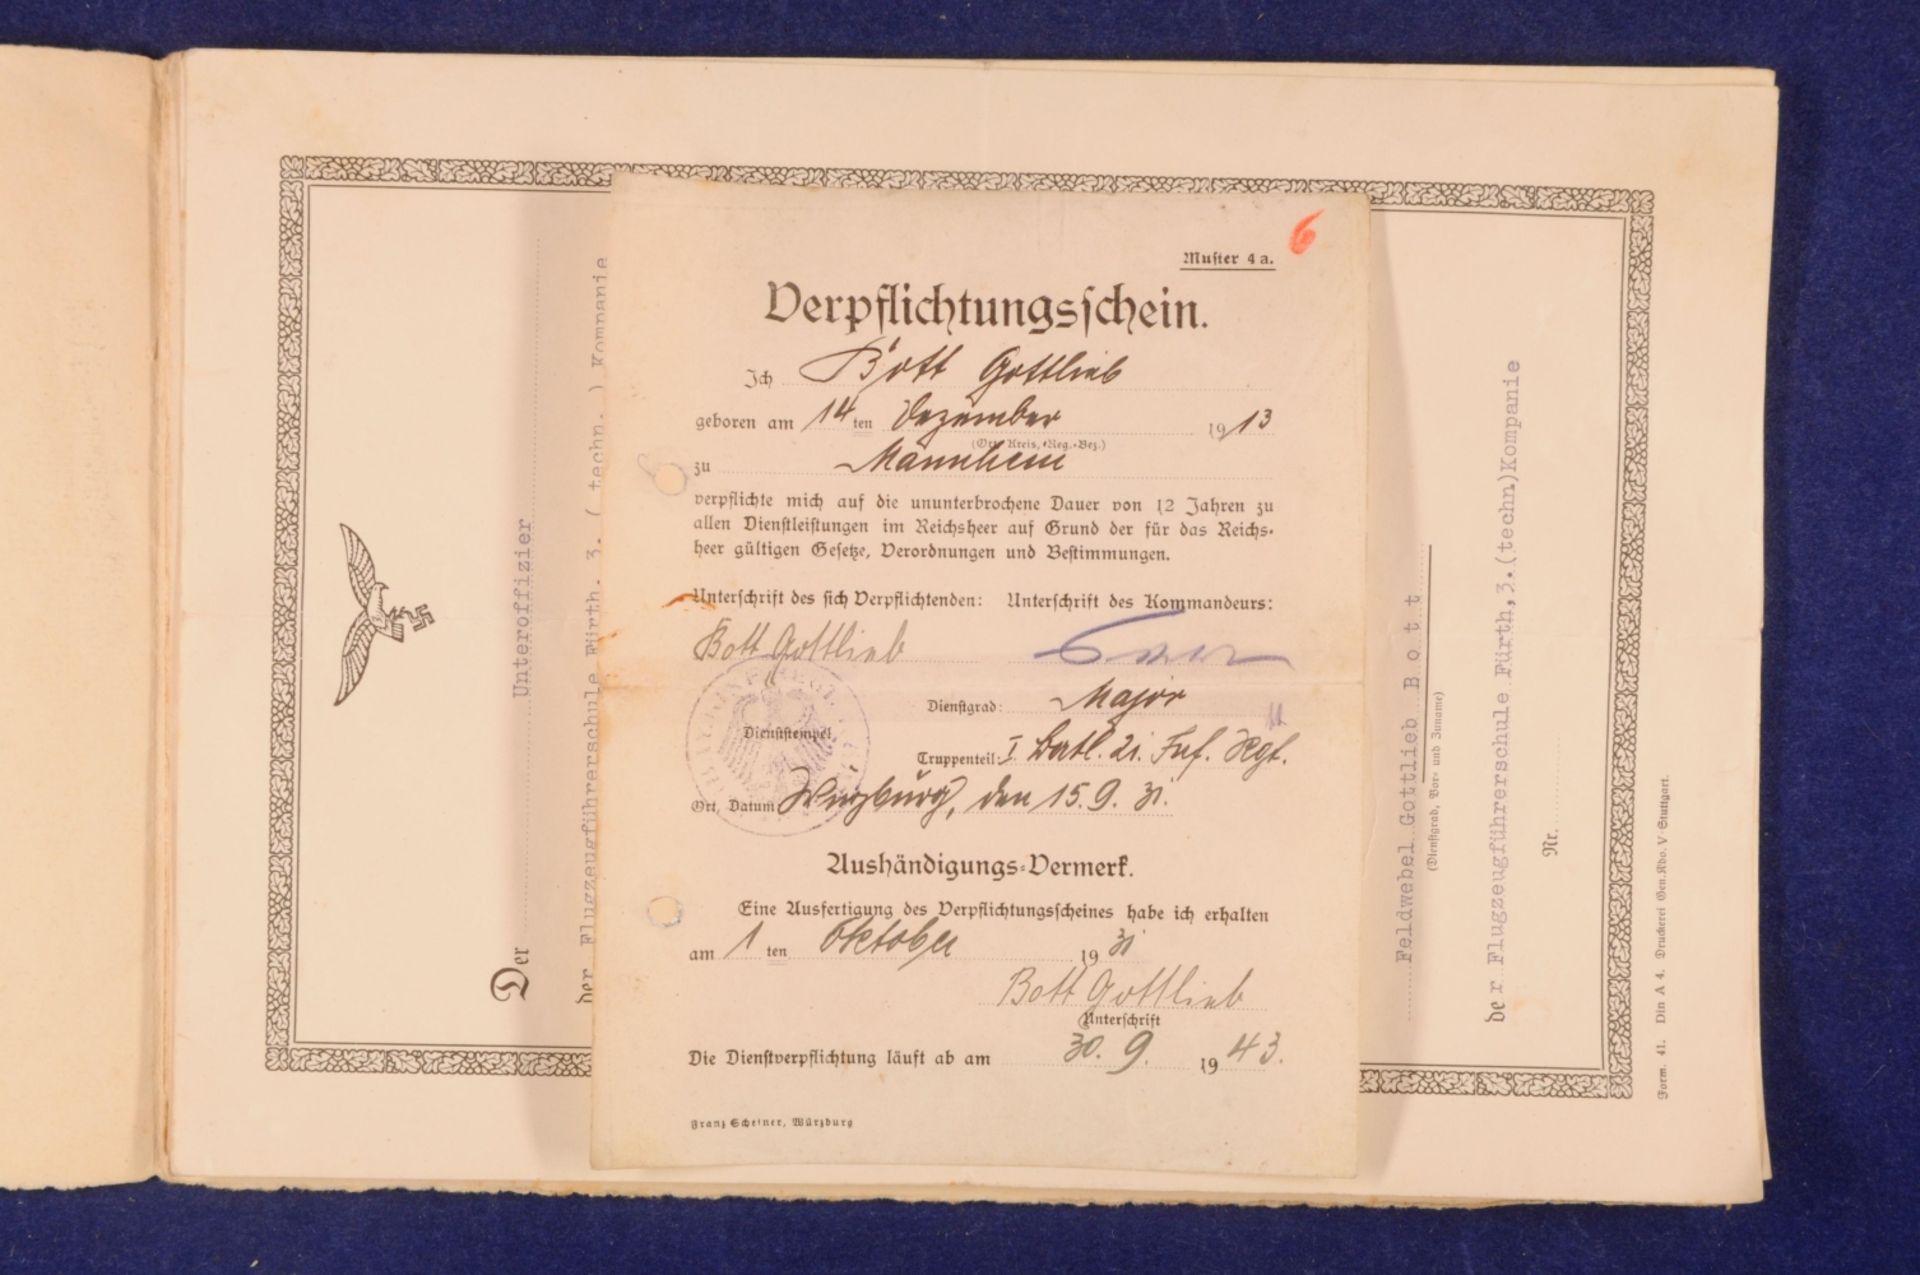 6
Muster 4 a.
Verpflichtungsschein.
Ich Bott Gottlieb
geboren am 14 ten Dezember 1913
(Ort, Kreis, Reg.-Bez.)
zu Mannheim
verpflichte mich auf die ununterbrochene Dauer von 12 Jahren zu
allen Dienstleistungen im Reichsheer auf Grund der für das Reichs-
heer gültigen Gesetze, Verordnungen und Bestimmungen.
Unterschrift des sich Verpflichtenden: Unterschrift des Kommandeurs:
Bott Gottlieb
Dienstgrad: Major
Dienststempel
Truppenteil: I. Batl. 21. Inf. Rgt.
Ort, Datum Würzburg, den 15. 9. 31.
Aushändigungs-Vermerk.
Eine Ausfertigung des Verpflichtungsscheines habe ich erhalten
am 1 ten Oktober 1931
Bott Gottlieb
Unterschrift
Die Dienstverpflichtung läuft ab am 30. 9. 1943.
Franz Scheiner, Würzburg
Der Unteroffizier
der Flugzeugführerschule Fürth. 3. ( techn. ) Kompanie
Feldwebel Gottlieb B o t t
(Dienstgrad, Vor- und Zuname)
der Flugzeugführerschule Fürth,3.(techn)Kompanie
Nr.
Form. 41. Din A 4. Druckerei Gen.Kdo. V Stuttgart.